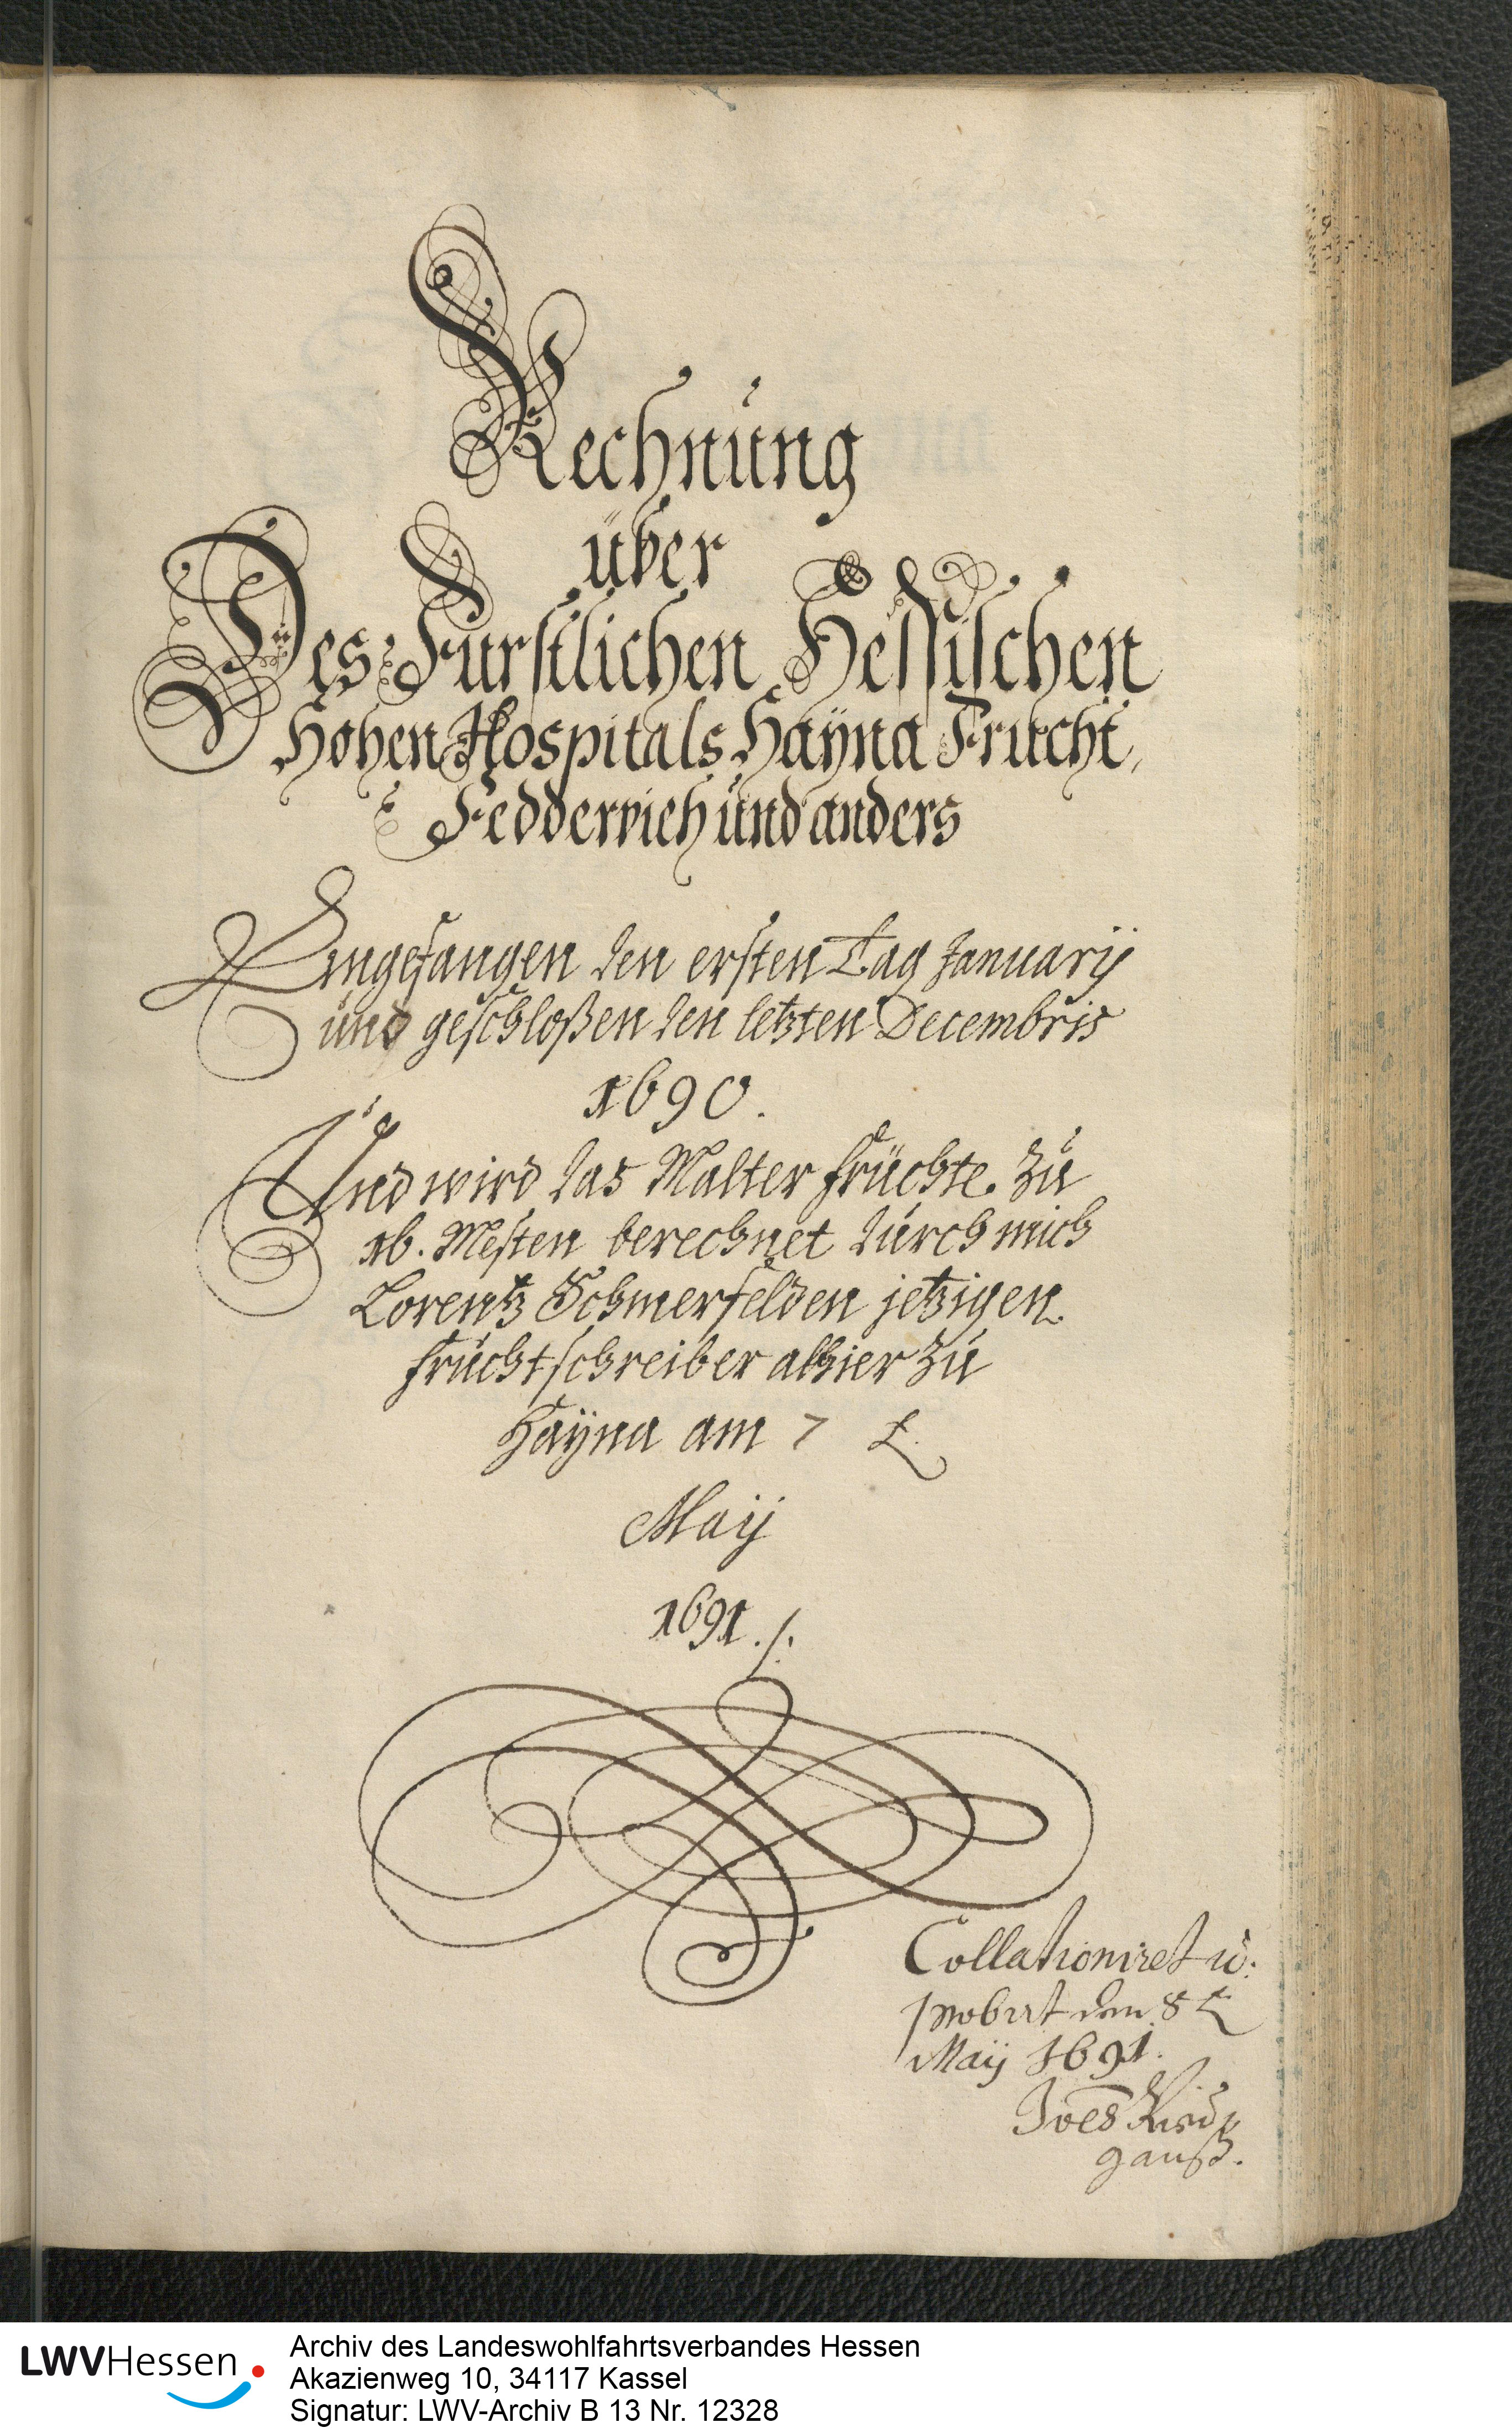 Rechnung
über
Des Fürstlichen Hessischen
Hohen Hospitals Haÿna Frucht,
Feddervieh und anders
Angefangen den ersten Tag Januarij
und geschloßen den letzten Decembris
1690.
Und wird das Malter früchte. zu
16. Mesten berechnet durch mich
Lorentz Schmerfelden jetzigen
fruchtschreiber alhier zu
Haÿna am 7 t.
Maij
1691./.
Collationiret u:
probirt den 8 t
Maij 1691.
Joēs
LWVHessen
Archiv des Landeswohlfahrtsverbandes Hessen
Akazienweg 10, 34117 Kassel
Signatur: LWV-Archiv B 13 Nr. 12328